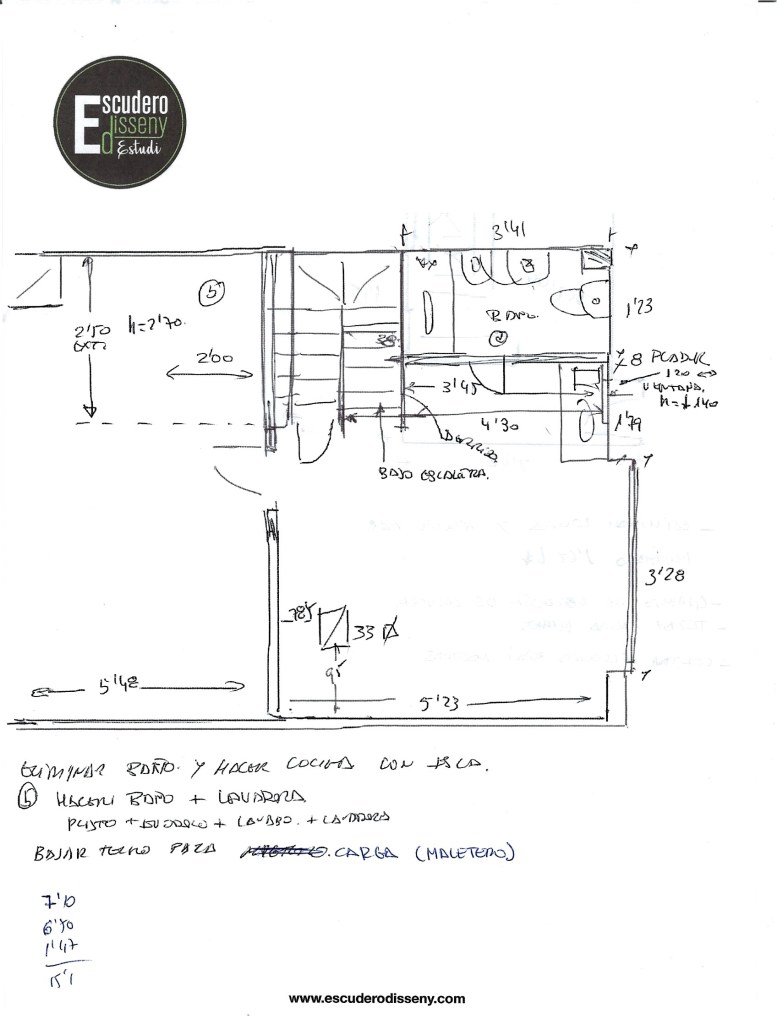 Escudero
disseny
Estudi
3'41
5
2'50
h=2'70.
2'00
38
BAÑO.
1'23
8 PLADUR
120 ↔
VENTANA
3'45
4'30
1'79
BAJO ESCALERA.
3'28
785
33
95
5'48
5'23
ELIMINAR BAÑO. Y HACER COCINA CON ISLA.
5 HACER BAÑO + LAVADORA
+ INODORO + LAVABO. + LAVADORA
BAJAR TECHO PARA CARGA (MALETERO)
7'10
6'50
1'47
15'1
www.escuderodisseny.com